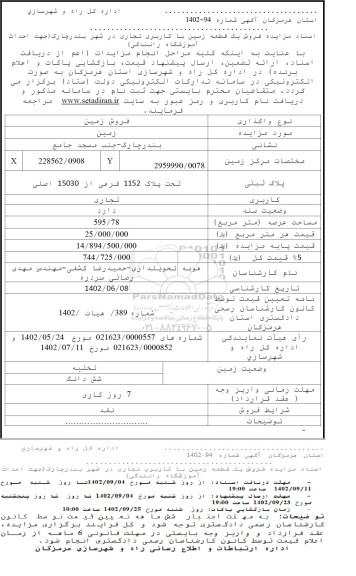 اداره کل راه و شهرسازی
استان هرمزگان آگهی شماره 94-1402
اسناد مزایده فروش یک قطعه زمین با کاربری تجاری در شهر بندرچارک(جهت احداث
آموزشگاه رانندگی)
با عنایت به اینکه کلیه مراحل انجام مزایدات (اعم از دریافت
اسناد، ارائه تضمین، ارسال پیشنهاد قیمت، بازگشایی پاکات و اعلام
برنده) در اداره کل راه و شهرسازی استان هرمزگان به صورت
الکترونیکی در سامانه تدارکات الکترونیکی دولت (ستاد) برگزار می
گردد، متقاضیان محترم بایستی جهت ثبت نام در سامانه مذکور و
دریافت نام کاربری و رمز عبور به سایت www.setadiran.ir مراجعه
فرمایند.
نوع واگذاری فروش زمین
مورد مزایده زمین
نشانی بندرچارک-جنب مسجد جامع
مختصات مرکز زمین 2959990/0078 Y 228562/0908 X
پلاک ثبتی تحت پلاک 1152 فرعی از 15030 اصلی
کاربری تجاری
وضعیت سند دارد
مساحت عرصه (متر مربع) 595/78
قیمت هر متر مربع 25/000/000
قیمت پایه مزایده 14/894/500/000
5% قیمت کل 744/725/000
نام کارشناسان هوبه تحویلداری-حمیدرضا کشفی-مهندس مهدی
رضائی سردره
تاریخ کارشناسی 1402/06/08
نامه تعیین قیمت توسط
کانون کارشناسان رسمی
دادگستری استان
هرمزگان
شماره 389/ هیات /1402
رأی هیأت نمایندگی
اداره کل راه و
شهرسازی
شماره های 021623/0000557 مورخ 1402/05/24 و
021623/0000852 مورخ 1402/07/11
وضعیت زمین تخلیه
شش دانگ
مهلت زمانی واریز وجه
( عقد قرارداد)
7 روز کاری
شرایط فروش نقد
توضیحات
اداره کل راه و شهرسازی
استان هرمزگان آگهی شماره 94-1402
اسناد مزایده فروش یک قطعه زمین با کاربری تجاری در شهر بندرچارک(جهت احداث
آموزشگاه رانندگی)
- مهلت دریافت اسناد: از روز شنبه مورخ 1402/09/04 تا روز شنبه مورخ
1402/09/11 ساعت 19:00
- مهلت ارسال پیشنهاد: از روز شنبه مورخ 1402/09/04 تا روز پنجشنبه
مورخ 1402/09/23 ساعت 19:00
زمان بازگشایی پاکات: روز شنبه مورخ 1402/09/25 ساعت 10:00
توضیحات: به مهلت اعتبار شش ماهه تعیین قیمت توسط کانون
کارشناسان رسمی دادگستری توجه شود و کل فرایند برگزاری مزایده،
عقد قرارداد و واریز وجه بایستی در مهلت قانونی 6 ماهه از زمان
اعلام قیمت توسط کانون کارشناسان رسمی دادگستری انجام شود.
اداره ارتباطات و اطلاع رسانی راه و شهرسازی هرمزگان